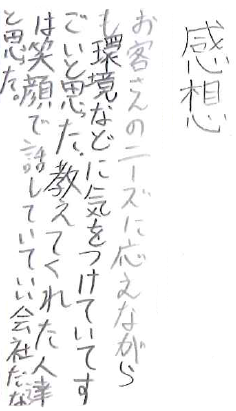 感想
お客さんのニーズに応えながら
も環境などに気をつけていてす
ごいと思った。教えてくれた人達
は笑顔で話していていい会社だな
と思った。